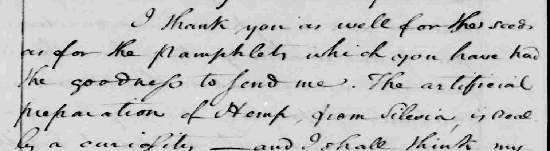 I thank you as well for the seeds
as for the Pamphlets which you have had
the goodness to send me. The artificial
preparation of Hemp, from Silesia, is real
ly a curiosity — and I shall think my